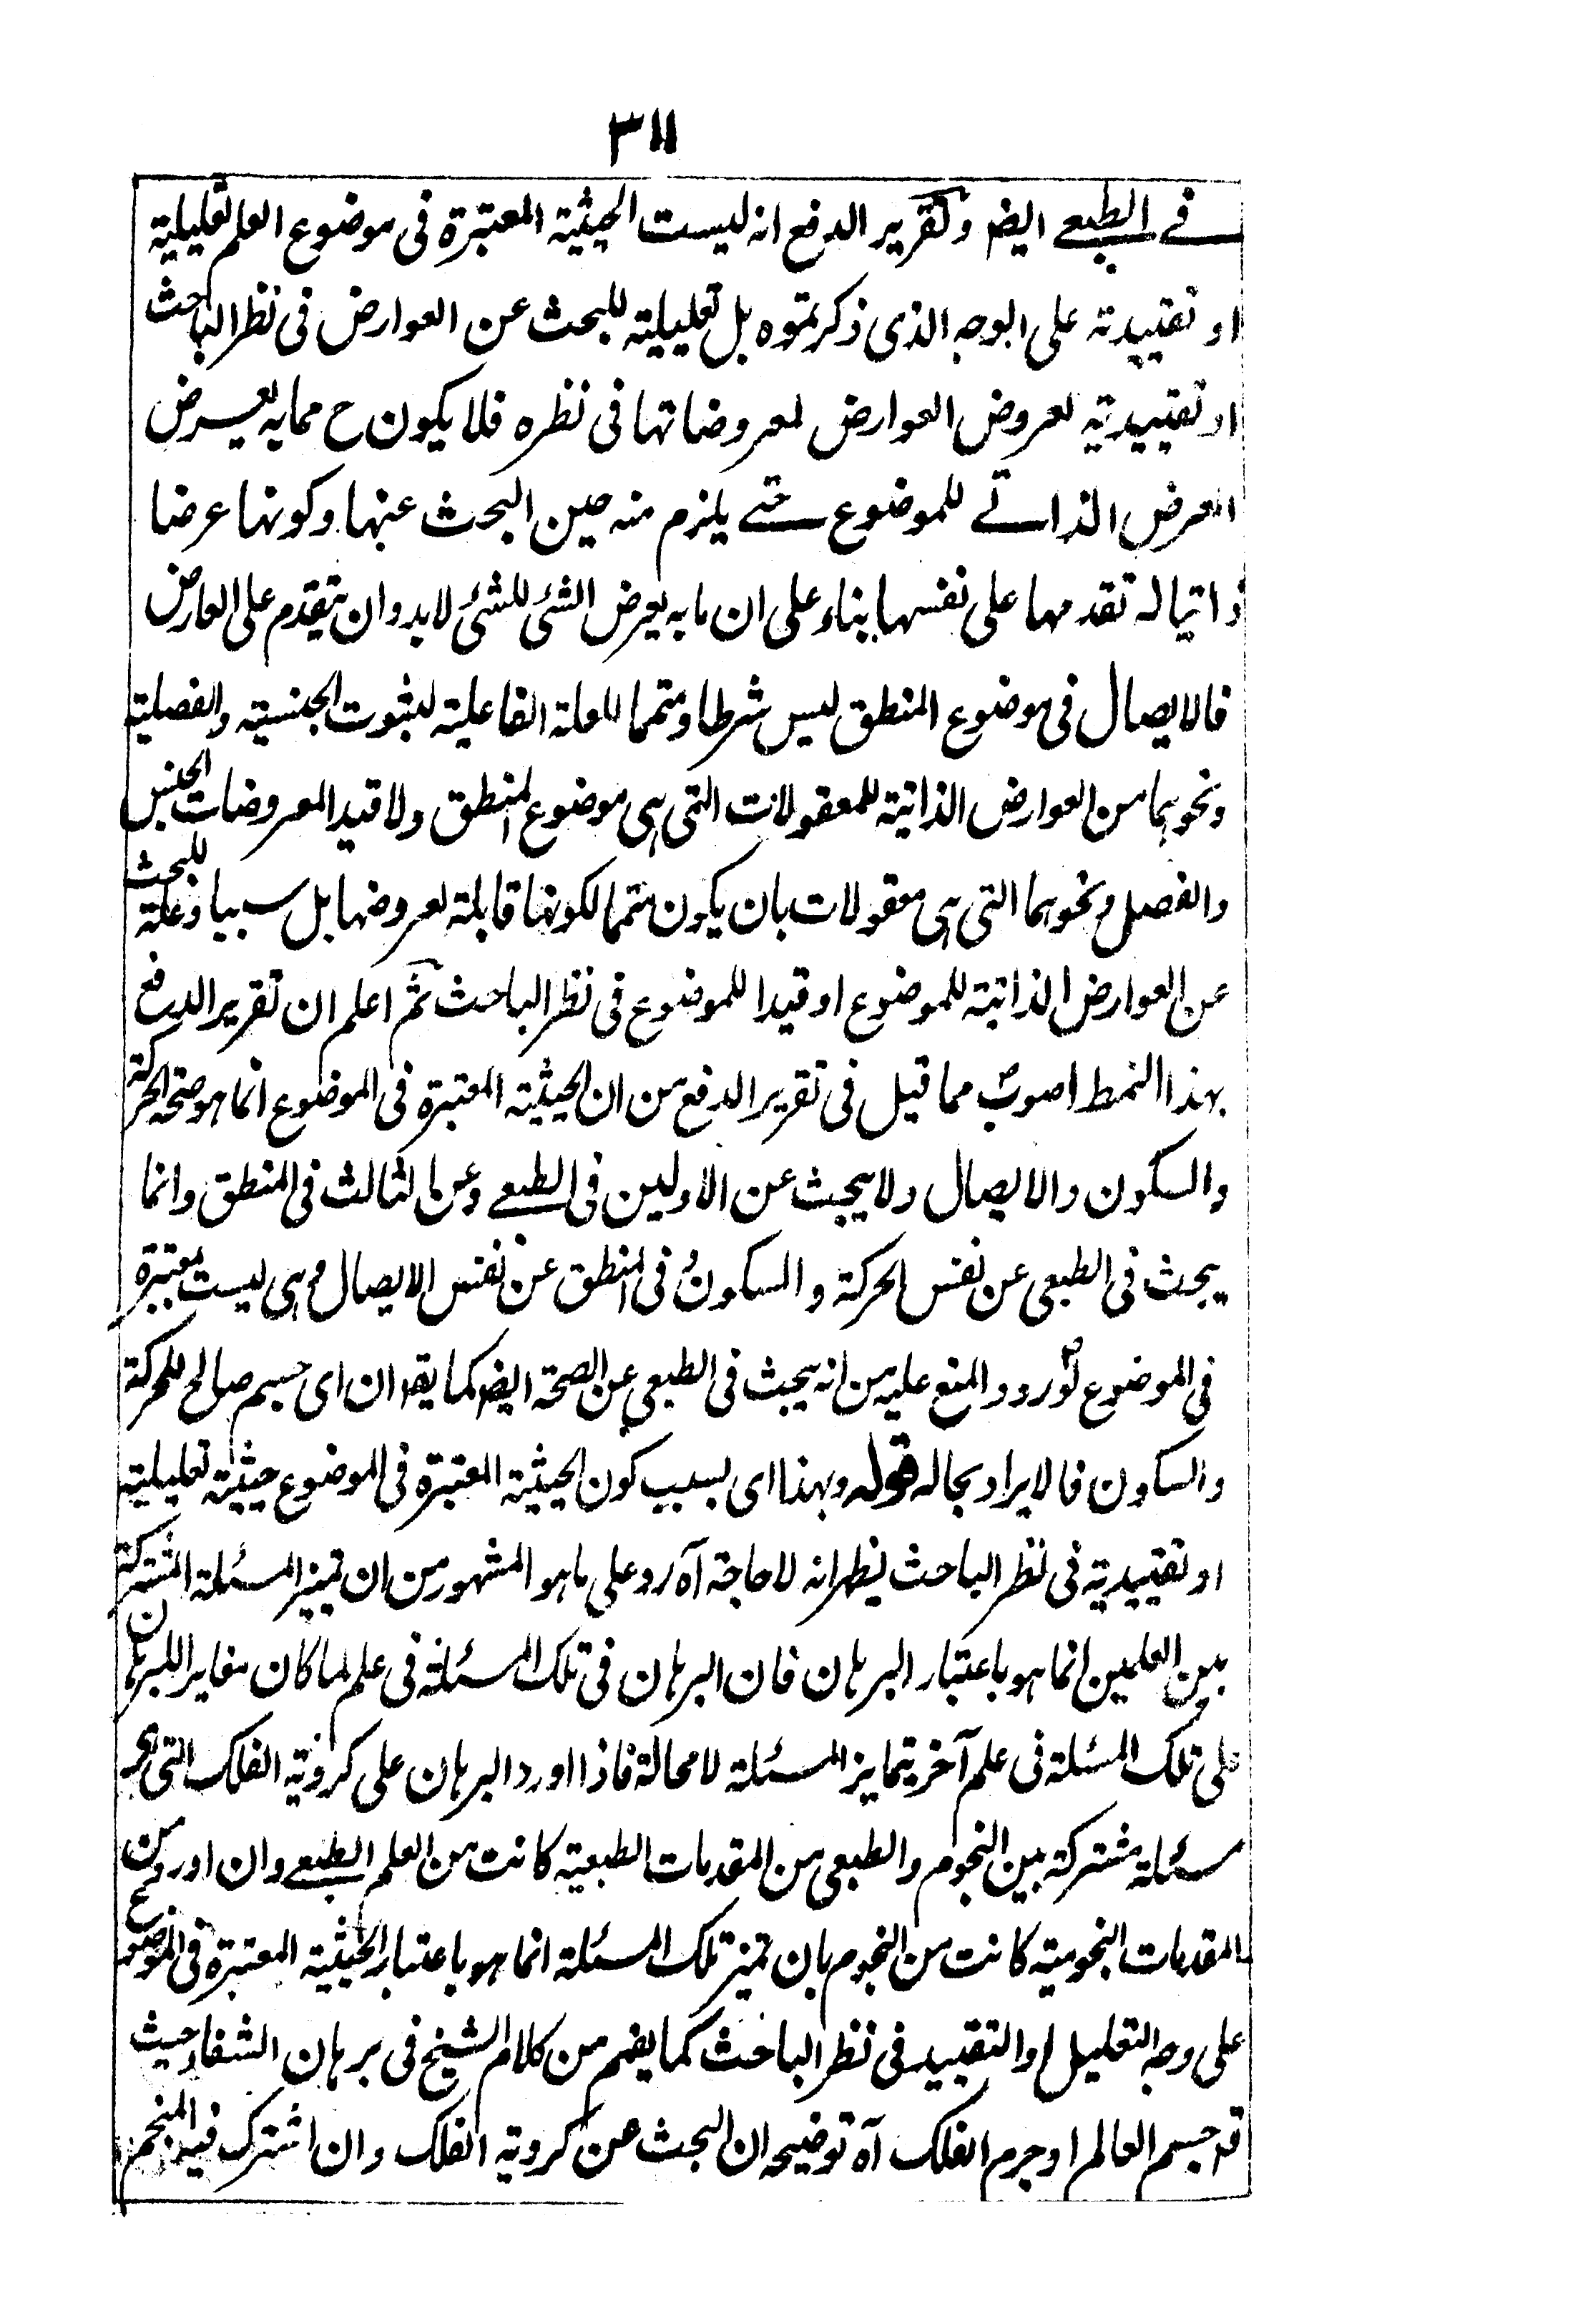 ٣١١
في الطبعي ايضا وتقرير الدفع انه ليست الحيثية المعتبرة في موضوع العلم تعليلية
او تقييدية على الوجه الذي ذكرتموه بل تعليلية للبحث عن العوارض في نظر الباحث
او تقييدية لعروض العوارض لمعروضاتها في نظره فلا يكون ح مما به يعرض
العرض الذاتي للموضوع حتى يلزم منه حين البحث عنها وكونها عرضا
ذاتيا له تقدمها على نفسها بناء على ان ما به يعرض الشئ للشئ لابد وان يتقدم على العارض
فالايصال في موضوع المنطق ليس شرطا ومتمما للعلة الفاعلية لثبوت الجنسية والفصلية
ونحوهما من العوارض الذاتية للمعقولات التي هي موضوع المنطق ولا قيدا لمعروضات الجنس
والفصل ونحوهما التي هي معقولات بان يكون متمما لكونها قابلة لعروضها بل سببا وعلة للبحث
عن العوارض الذاتية للموضوع او قيدا للموضوع في نظر الباحث ثم اعلم ان تقرير الدفع
بهذا النمط اصوب مما قيل في تقرير الدفع من ان الحيثية المعتبرة في الموضوع انما هو صحة الحركة
والسكون والايصال ولا يبحث عن الاولين في الطبعي وعن الثالث في المنطق وانما
يبحث في الطبعي عن نفس الحركة والسكون وفي المنطق عن نفس الايصال وهي ليست معتبرة
في الموضوع لورود المنع عليه من انه يبحث في الطبعي عن الصحة ايضا كما يقا ان اي جسم صالح للحركة
والسكون فالايراد بحاله قوله وبهذا اي بسبب كون الحيثية المعتبرة في الموضوع حيثية تعليلية
او تقييدية في نظر الباحث يظهر انه لا حاجة آه رد على ما هو المشهور من ان تميز المسئلة المشتركة
بين العلمين انما هو باعتبار البرهان فان البرهان في تلك المسئلة في علم لما كان مغايرا للبرهان
على تلك المسئلة في علم آخر يتمايز المسئلة لا محالة فاذا اورد البرهان على كروية الفلك التي هي
مسئلة مشتركة بين النجوم والطبعي من المقدمات الطبعية كانت من العلم الطبعي وان اورد من
المقدمات النجومية كانت من النجوم بان تميز تلك المسئلة انما هو باعتبار الحيثية المعتبرة في الموضوع
على وجه التعليل او التقييد في نظر الباحث كما يفهم من كلام الشيخ في برهان الشفاء حيث
قه جسم العالم او جرم الفلك آه توضيحه ان البحث عن كروية الفلك وان اشترك فيه المنجم